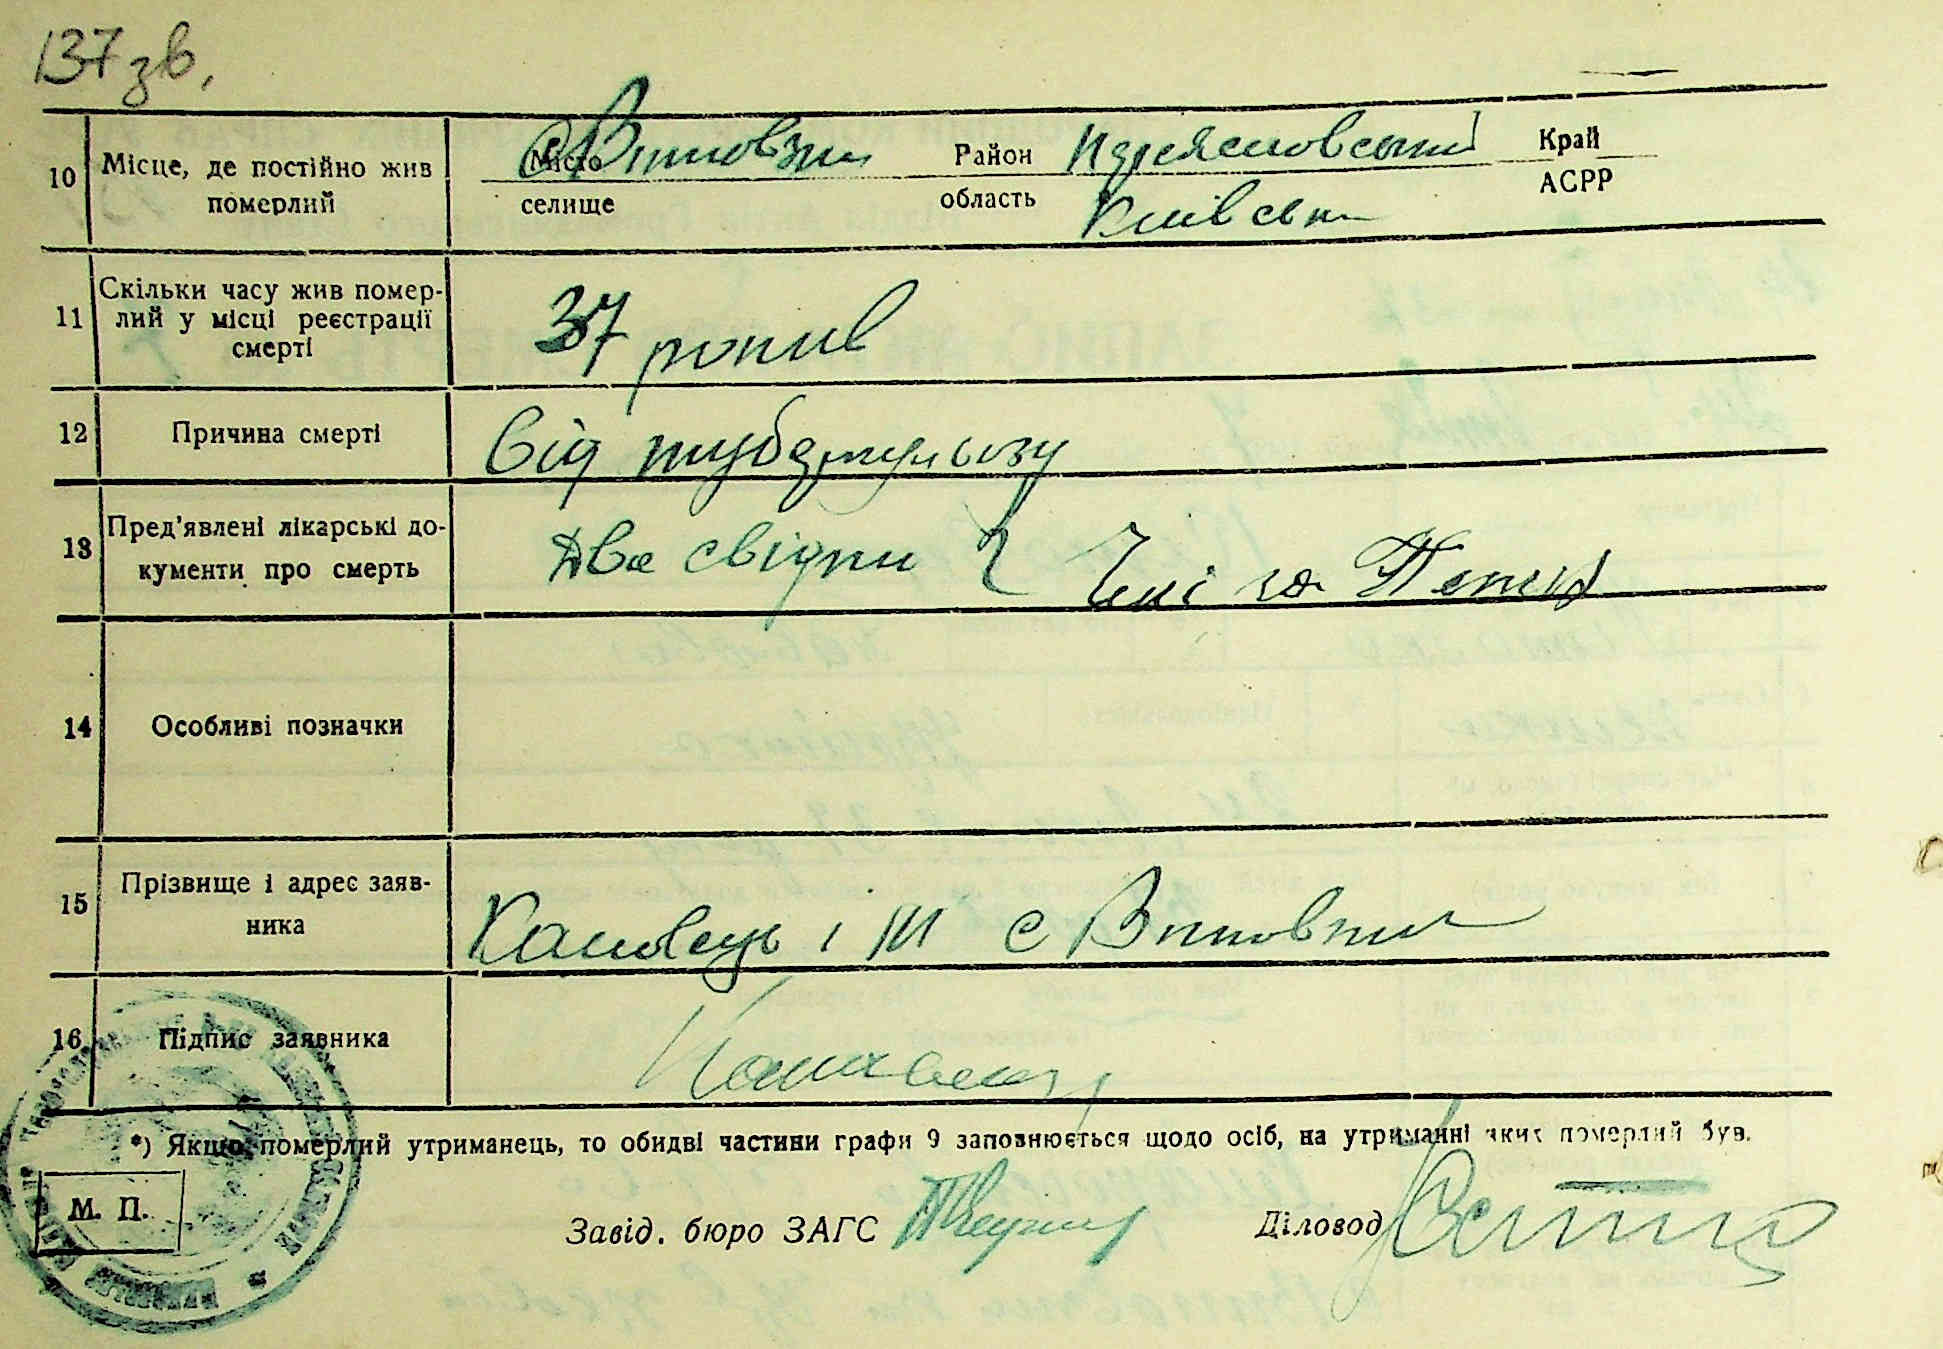 137 зв.
10 Місце, де постійно жив померлий
Місто с Вінновзни Район Переяславський Край
селище область Київська АСРР
11 Скільки часу жив помер-
лий у місці реєстрації
смерті
37 років
12 Причина смерті
від туберкульозу
13 Пред'явлені лікарські до-
кументи про смерть
Два свідки
14 Особливі позначки
15 Прізвище і адрес заяв-
ника
с
16 Підпис заявника
*) Якщо померлий утриманець, то обидві частини графи 9 заповнюється щодо осіб, на утриманні яких померлий був.
М. П.
Завід. бюро ЗАГС Діловод